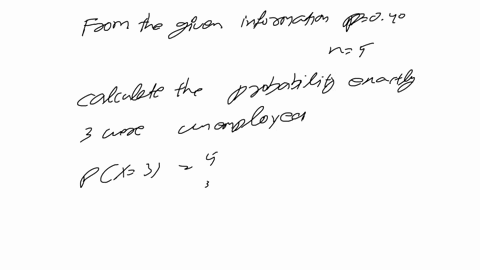 From the given information p=0.40
n=5
calculate the probability exactly
3 were unemployed
P(X=3) = 5
3